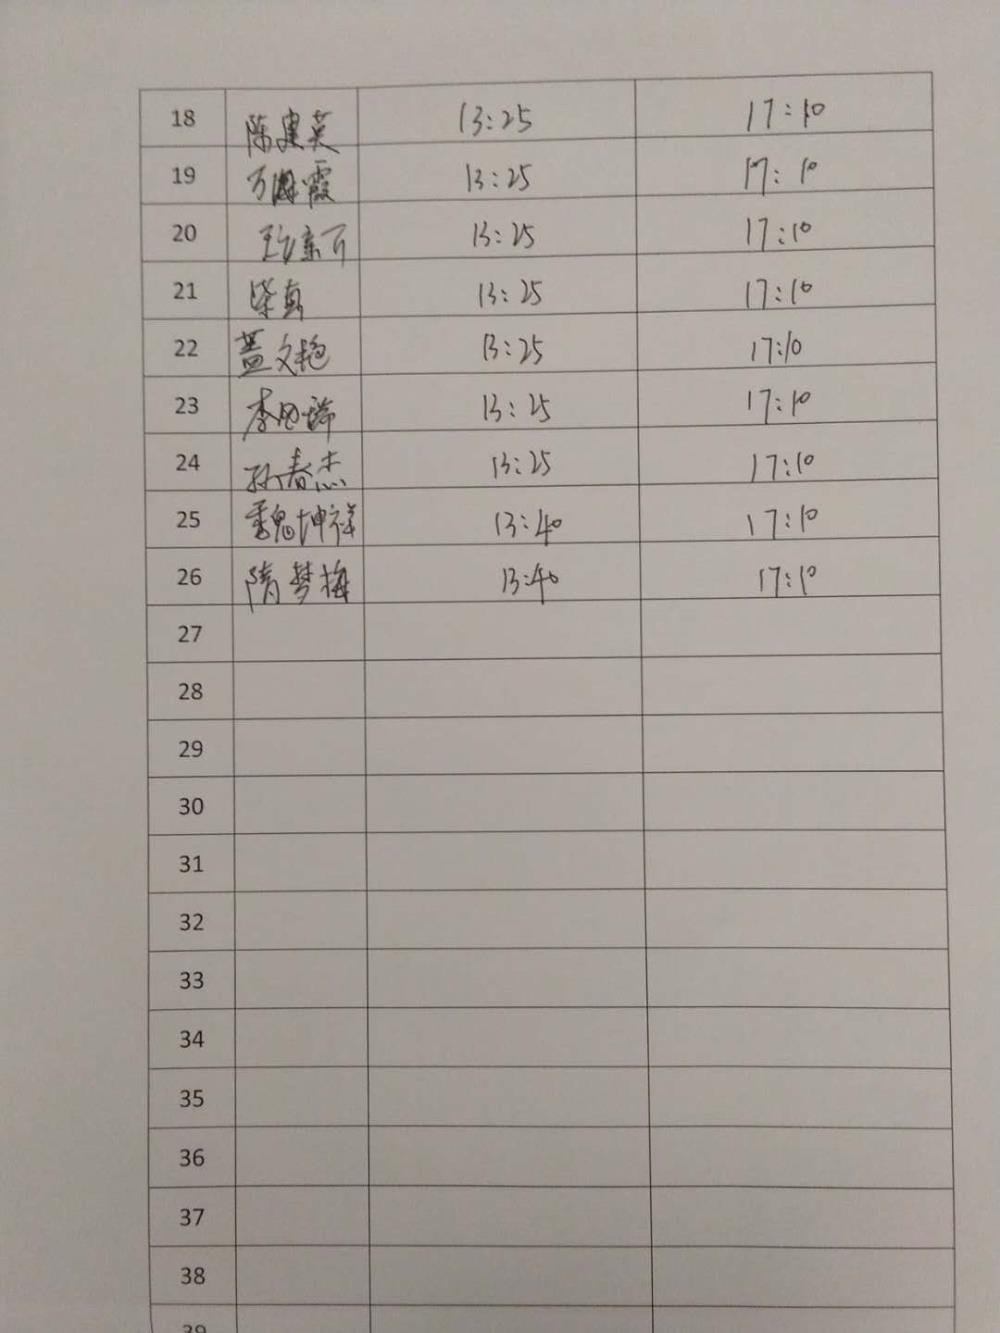 18 陈建英 13:25 17:10
19 万海霞 13:25 17:10
20 13:25 17:10
21 柴真 13:25 17:10
22 盖文艳 13:25 17:10
23 李 13:25 17:10
24 孙春杰 13:25 17:10
25 魏坤祥 13:40 17:10
26 隋梦梅 13:40 17:10
27
28
29
30
31
32
33
34
35
36
37
38
39